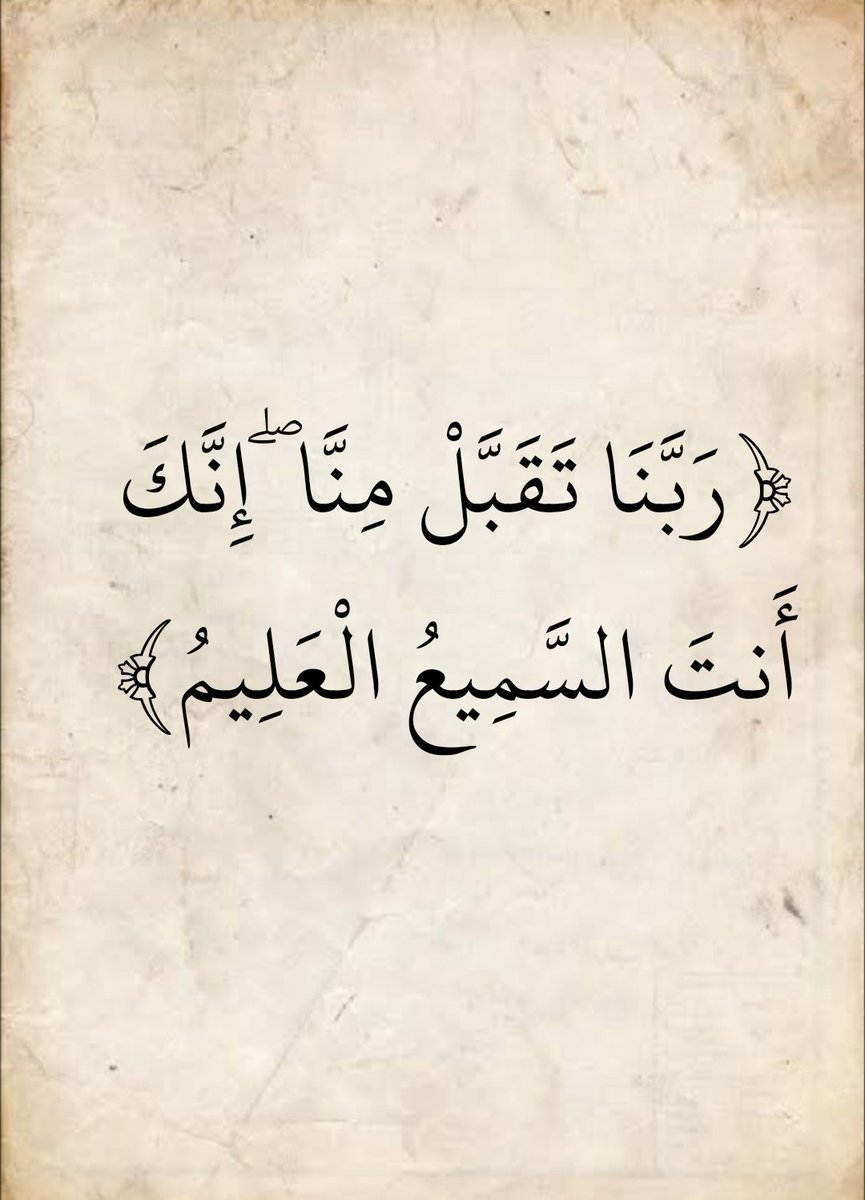 ﴿رَبَّنَا تَقَبَّلْ مِنَّا ۖ إِنَّكَ
أَنتَ السَّمِيعُ الْعَلِيمُ﴾